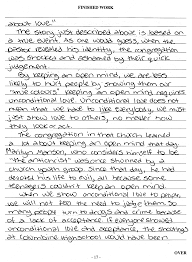 FINISHED WORK
about love."
The story just described above is based on
a true event. As one would guess, when the
pastor revealed his identity, the congregation
was shocked and ashamed by their quick
judgement.
By keeping an open mind, we are less
likely to hurt people by showing them our
true Keeping an open mind requires
unconditional love. Unconditional love does not
mean that we have to like everybody, we must
just show love to others, no matter how
they look or act.
The congregation in that church learned
a lot about keeping an open mind that day.
Marilyn Manson, who considers himself to be
"the antichrist" was once shunned by a
church youth group. Since that day, he had
devoted his life to evil, all because some
teenagers couldn't keep an open mind.
When we show unconditional love to people,
we will not feel the need to judge them. So
many people turn to drugs and crime because
of a lack of acceptance. If someone showed
unconditional love and acceptance, the shootings
at Columbine High School would have been
- 17 -
OVER